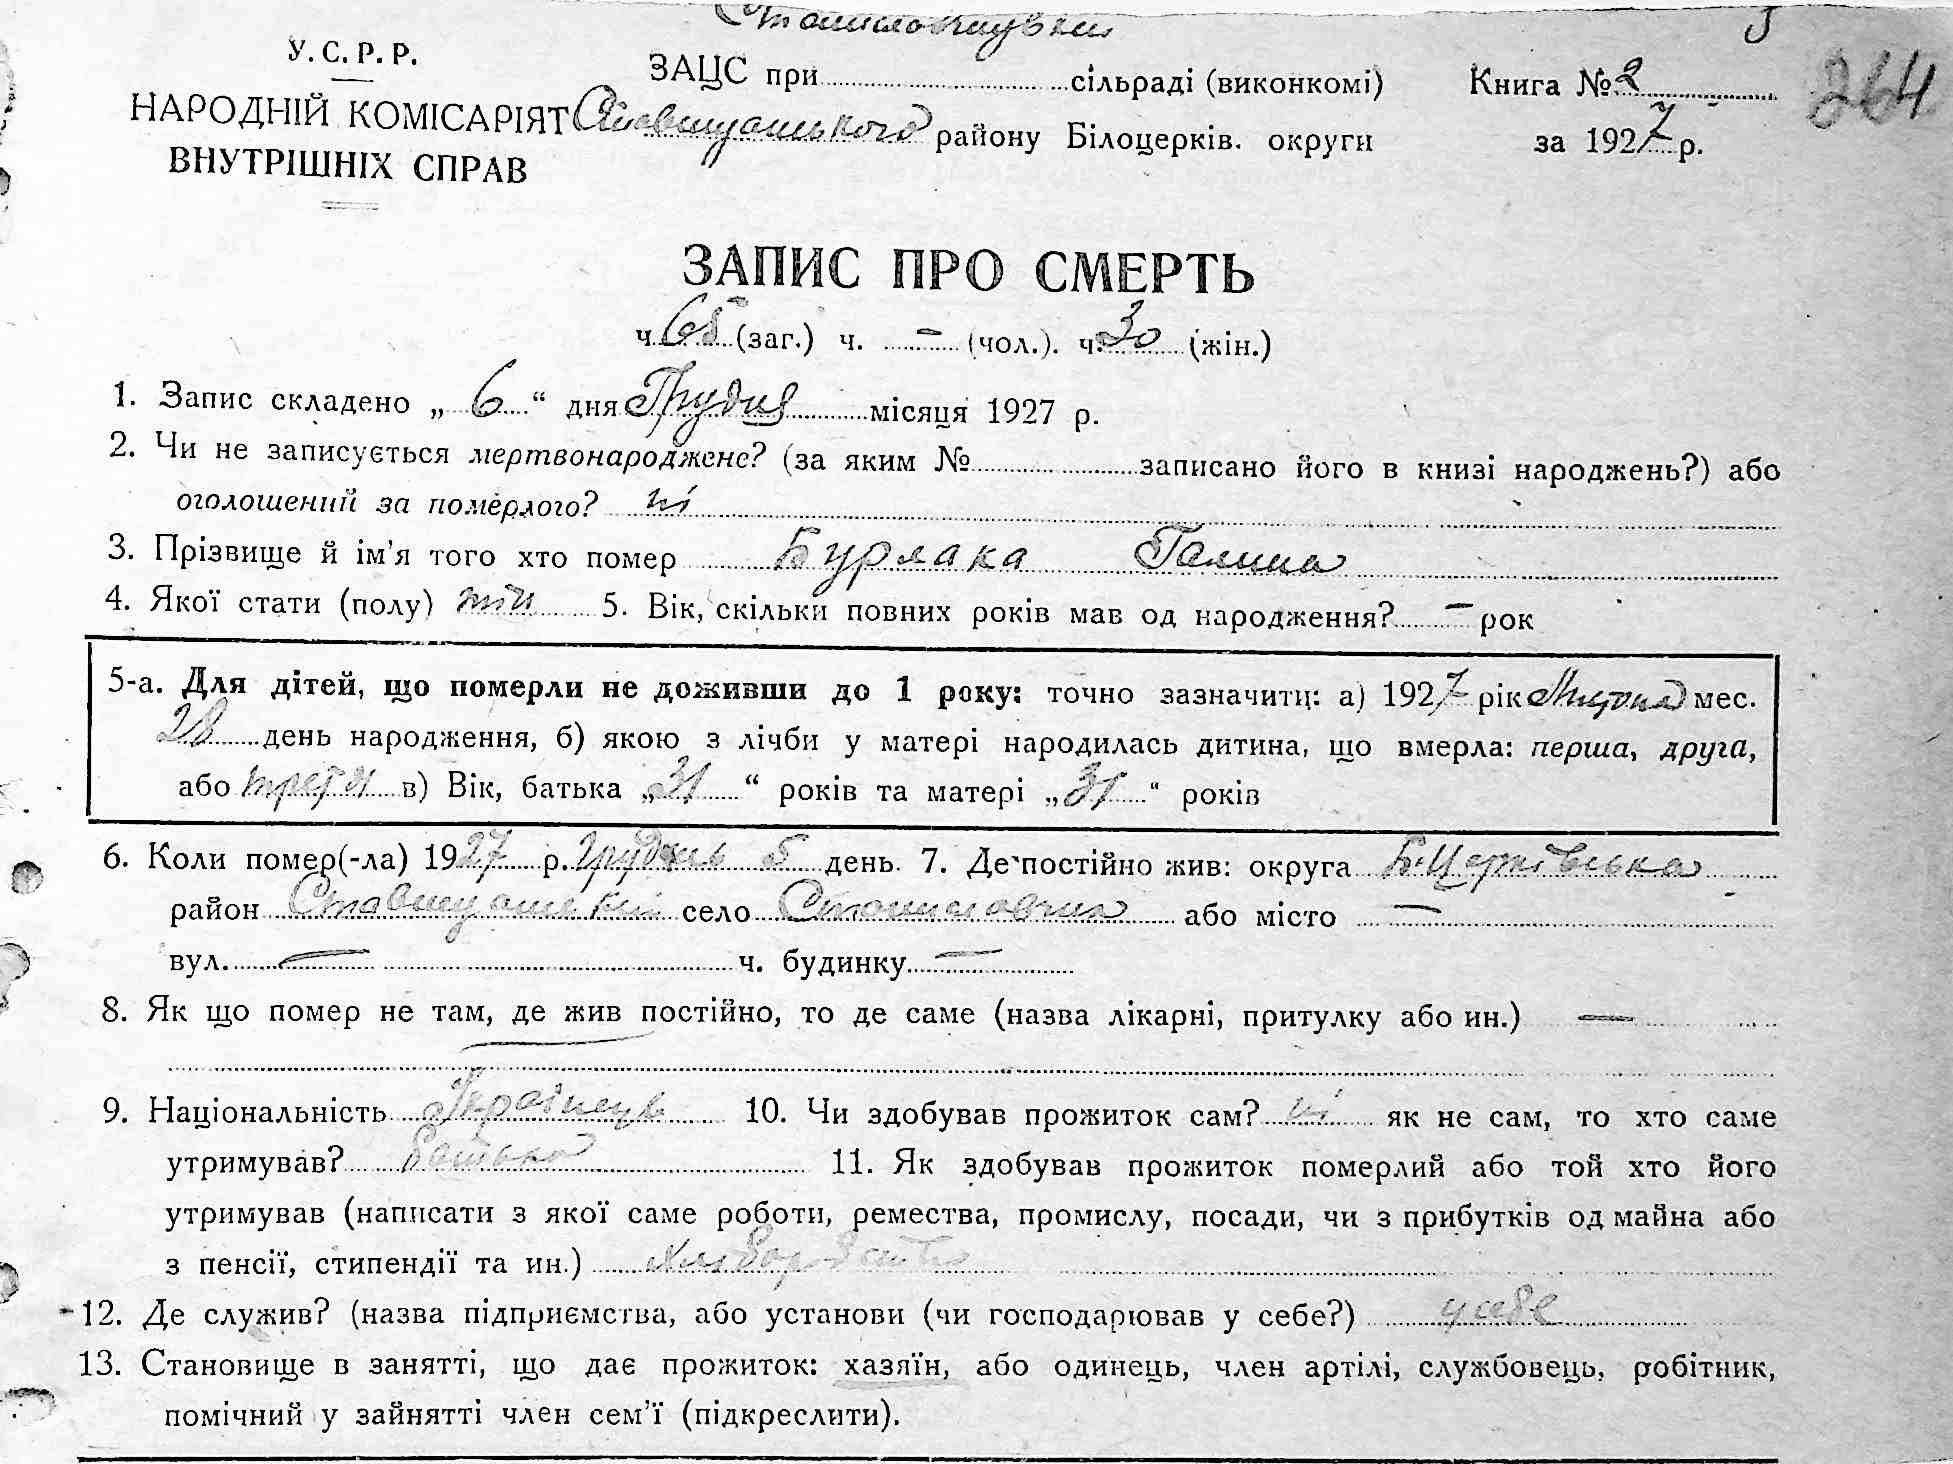 У.С.Р.Р.
НАРОДНІЙ КОМІСАРІЯТ
ВНУТРІШНІХ СПРАВ
ЗАЦС при сільраді (виконкомі)
району Білоцерків. округи
Книга № 2
за 1927 р.
264
ЗАПИС ПРО СМЕРТЬ
ч. 65 (заг.) ч. — (чол.). ч. 30 (жін.)
1. Запис складено „ 6 “ дня Грудня місяця 1927 р.
2. Чи не записується мертвонароджене? (за яким № записано його в книзі народжень?) або
оголошений за померлого? ні
3. Прізвище й ім'я того хто помер Бурлака Галина
4. Якої стати (полу) жін 5. Вік, скільки повних років мав од народження? — рок
5-а. Для дітей, що померли не доживши до 1 року: точно зазначити: а) 1927 рік мес.
28 день народження, б) якою з лічби у матері народилась дитина, що вмерла: перша, друга,
або третя в) Вік, батька „ 31 “ років та матері „ 31 “ років
6. Коли помер(-ла) 1927 р. грудень 5 день. 7. Де постійно жив: округа Б-Церківська
район Ставищанській село Станиславчик або місто —
вул. — ч. будинку —
8. Як що помер не там, де жив постійно, то де саме (назва лікарні, притулку або ин.) —
9. Національність Українець 10. Чи здобував прожиток сам? ні як не сам, то хто саме
утримував? батько 11. Як здобував прожиток померлий або той хто його
утримував (написати з якої саме роботи, ремества, промислу, посади, чи з прибутків од майна або
з пенсії, стипендії та ин.)
12. Де служив? (назва підприємства, або установи (чи господарював у себе?) у себе
13. Становище в занятті, що дає прожиток: хазяїн, або одинець, член артілі, службовець, робітник,
помічний у зайнятті член сем'ї (підкреслити).